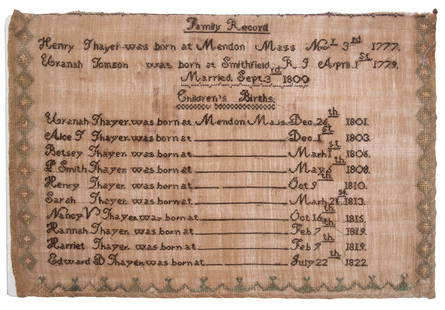 Family Record
Henry Thayer was born at Mendon Mass Nov 3rd 1777.
Uranah Tomson was born at Smithfield R I April 1st 1779.
Married Sept 3rd 1800
Children's Births
Uranah Thayer was born at Mendon Mass Dec 26th 1801.
Alce T Thayer was born at Dec 1st 1803.
Betsey Thayer was born at Marh 1st 1806.
P Smith Thayer was born at May 6th 1808.
Henry Thayer was born at Oct 9th 1810.
Sarah Thayer was born at Marh 21st 1813.
Nancy V Thayer was born at Oct 16th 1815.
Hannah Thayer was born at Feb 7th 1819.
Harriet Thayer was born at Feb 7th 1819.
Edward D Thayer was born at July 22th 1822.